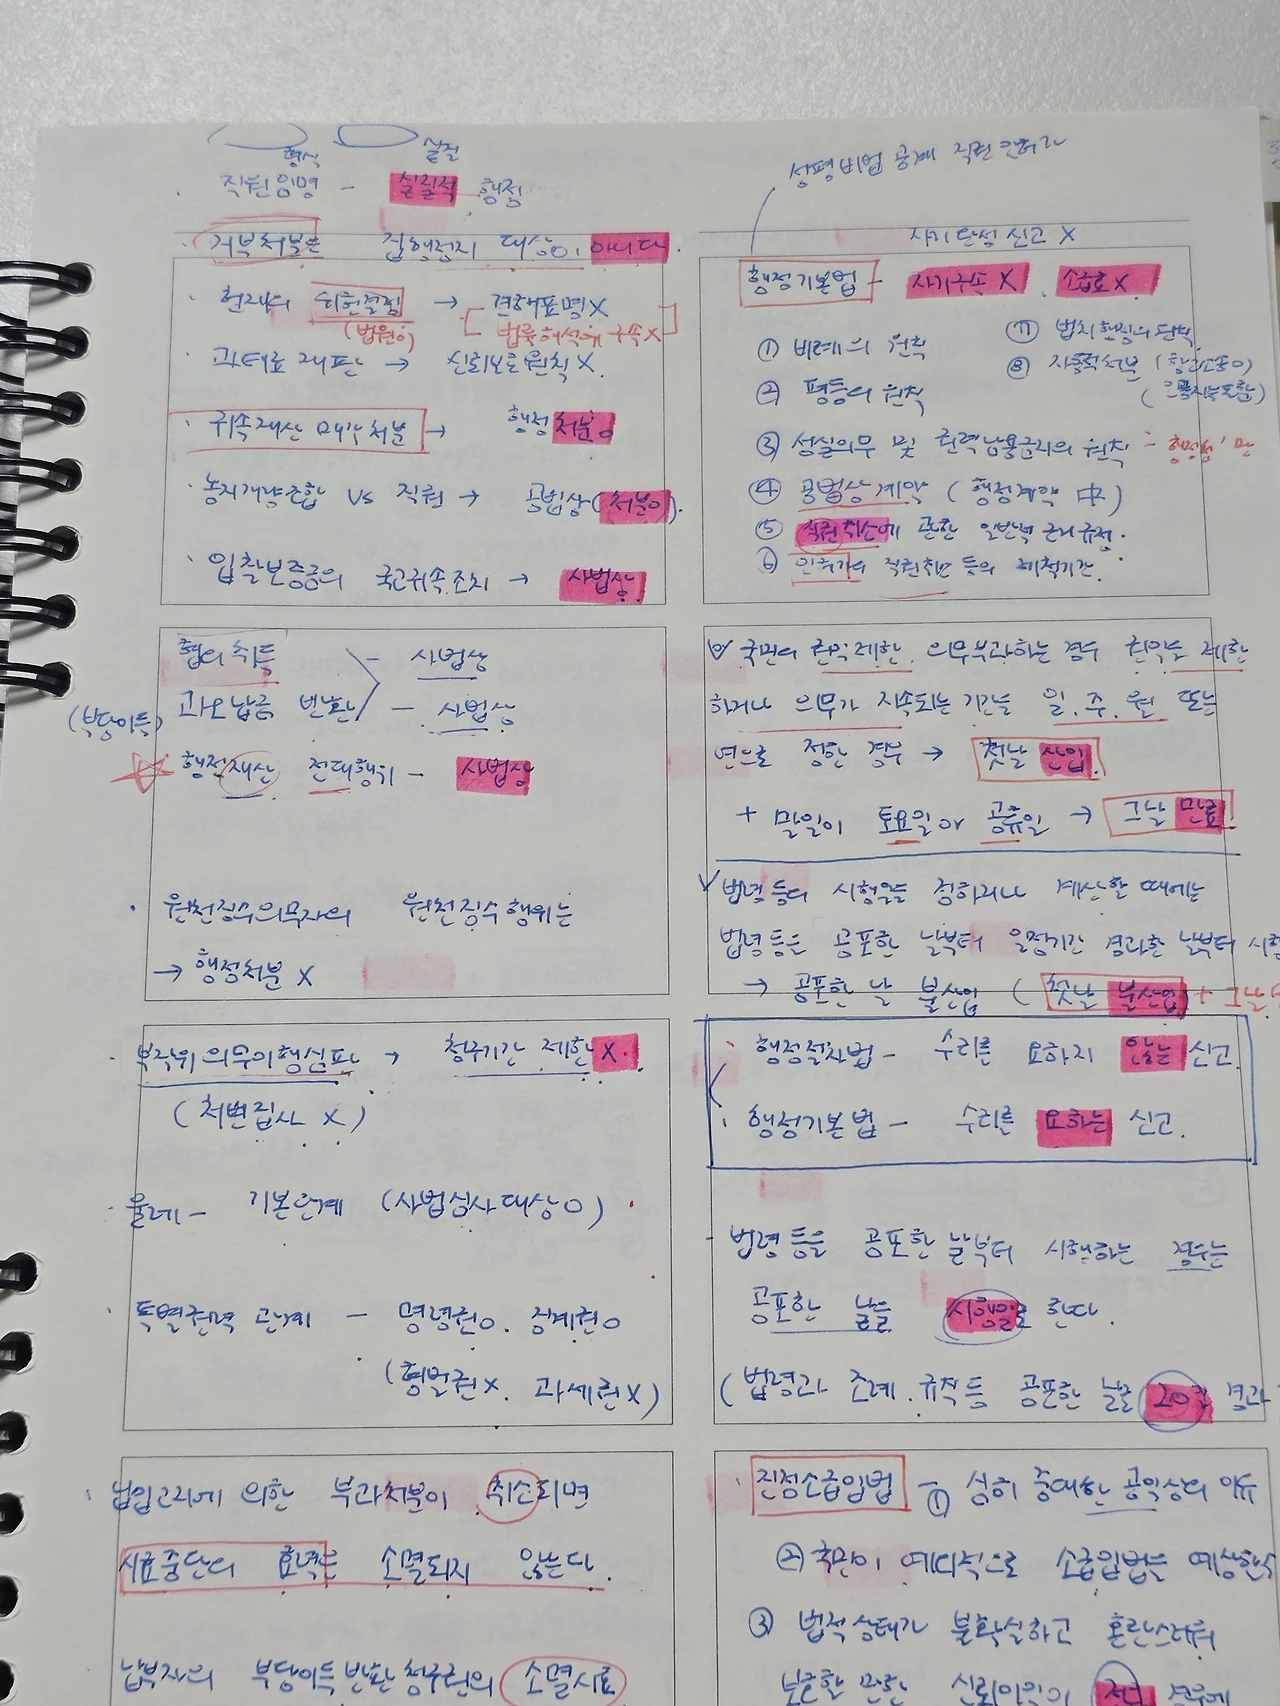 형식 실질
· 직원임명 - 실질적 행정
· 거부처분은 집행정지 대상이 아니다.
· 헌재의 위헌결정 → 견해표명 X
(법원이) 법률해석에 구속 X
· 과태료 재판 → 신뢰보호원칙 X.
· 귀속재산 매각처분 → 행정처분O
· 농지개량조합 vs 직원 → 공법상 (처분O).
· 입찰보증금의 국고귀속조치 → 사법상.
협의취득 - 사법상
(부당이득) 과오납금 반환 - 사법상
☆ 행정재산 전대행위 - 사법상
· 원천징수의무자의 원천징수행위는
→ 행정처분 X
· 부작위 의무이행심판 → 청구기간 제한 X.
(처변집사 X)
· 울레 - 기본관계 (사법심사대상O)
· 특별권력 관계 - 명령권O. 징계권O
(형벌권X. 과세권X)
· 납입고지에 의한 부과처분이 취소되면
시효중단의 효력은 소멸되지 않는다.
납부자의 부당이득반환청구권의 소멸시효
성평비법 공계 직권인허가
자기완성 신고 X
행정기본법 - 자기구속 X. 소급효 X
① 비례의 원칙
② 평등의 원칙
③ 성실의무 및 권력남용금지의 원칙
④ 공법상계약 (행정계약 中)
⑤ 직권취소에 관한 일반적 근거규정.
⑥ 인허가의 직권취소 등의 제척기간.
⑦ 법치행정의 원칙
⑧ 자동적처분
V 국민의 권익제한. 의무부과하는 경우 권익을 제한
하거나 의무가 지속되는 기간을 일. 주. 월 또는
년으로 정한 경우 → 첫날 산입.
+ 말일이 토요일or 공휴일 → 그날 만료
V 법령등의 시행일을 정하거나 계산할 때에는
법령등을 공포한 날부터 일정기간 경과한 날부터 시행
→ 공포한 날 불산입 (첫날 불산입) + 그날
· 행정절차법 - 수리를 요하지 않는 신고.
· 행정기본법 - 수리를 요하는 신고.
- 법령등을 공포한 날부터 시행하는 경우는
공포한 날을 시행일로 한다.
(법령과 조례. 규칙등 공포한 날로 20일 경과
· 진정소급입법 - ① 심히 중대한 공익상의 이유
② 국민이 예외적으로 소급입법을 예상한
③ 법적상태가 불확실하고 혼란스러워
보호할 만한 신뢰이익이